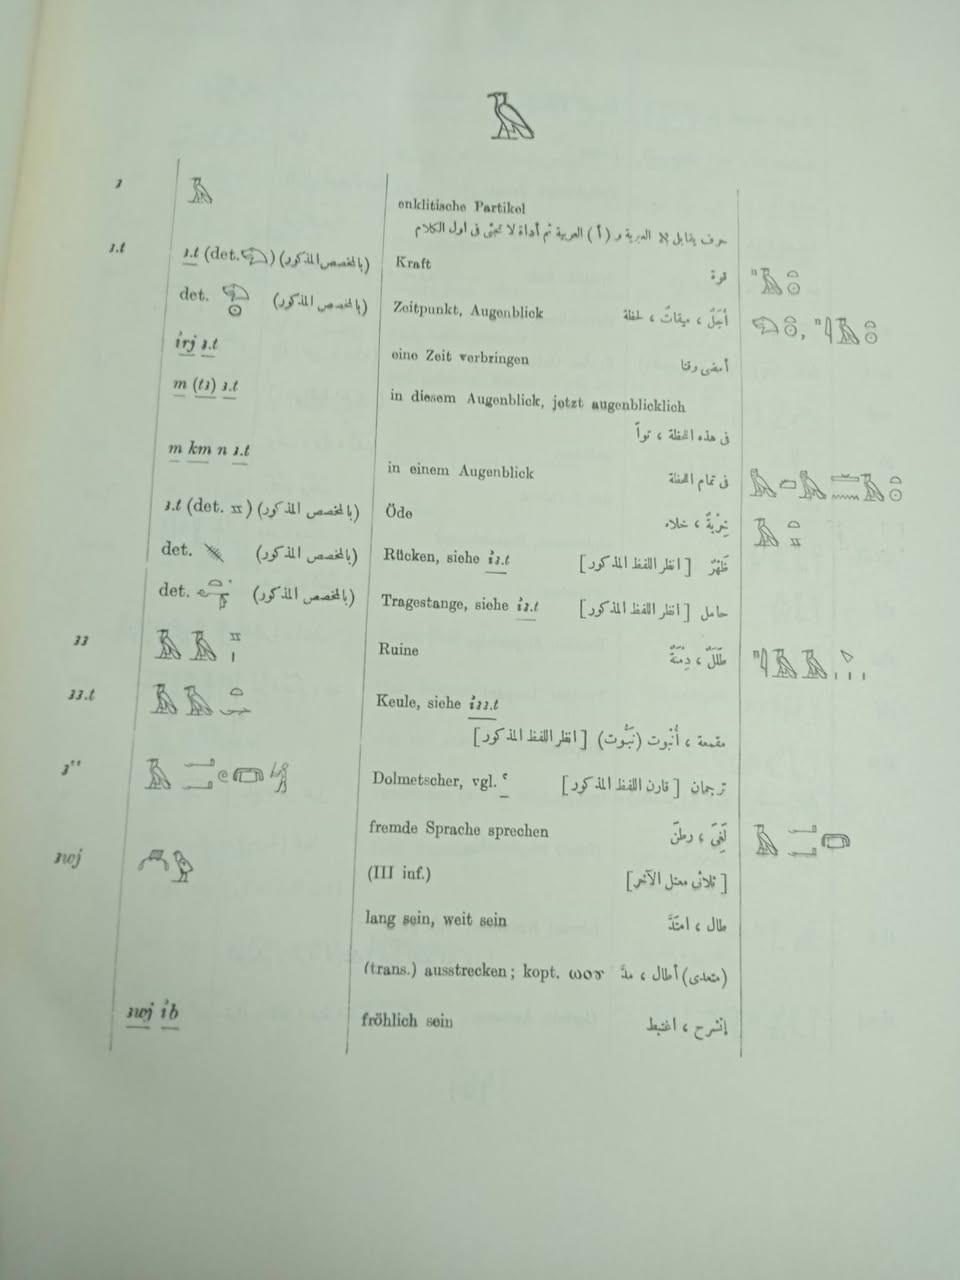 𓄿
ꜣ 𓄿 enklitische Partikel
حرف يقابل א العبرية و (أ) العربية ثم أداة لا تجئ فى اول الكلام
ꜣ.t ꜣ.t (det. 𓄂) (بالمخصص المذكور) Kraft قوة
det. (بالمخصص المذكور) Zeitpunkt, Augenblick أَجَلٌ ، ميقاتٌ ، لحظة
irj ꜣ.t eine Zeit verbringen أمضى وقتا
m (tꜣ) ꜣ.t in diesem Augenblick, jetzt augenblicklich
فى هذه اللحظة ، تواً
m km n ꜣ.t in einem Augenblick فى تمام اللحظة
ꜣ.t (det. 𓈓) (بالمخصص المذكور) Öde خِرْبَةٌ ، خلاء
det. (بالمخصص المذكور) Rücken, siehe iꜣ.t ظَهْرٌ [انظر اللفظ المذكور]
det. (بالمخصص المذكور) Tragestange, siehe iꜣ.t حامل [انظر اللفظ المذكور]
ꜣꜣ 𓄿𓄿 Ruine طَلَلٌ ، دِمْنَةٌ
ꜣꜣ.t 𓄿𓄿 Keule, siehe iꜣꜣ.t
مقمعة ، أنبوت (نَبُّوت) [انظر اللفظ المذكور]
ꜣʿʿ Dolmetscher, vgl. ʿ ترجمان [قارن اللفظ المذكور]
fremde Sprache sprechen لَغِيَ ، رطنَ
ꜣwj (III inf.) [ثلاثى معتل الآخر]
lang sein, weit sein طال ، امتَدَّ
(trans.) ausstrecken; kopt. ⲱⲟⲩ (متعدى) أطال ، مدَّ
ꜣwj ib fröhlich sein إنشرح ، اغتبط